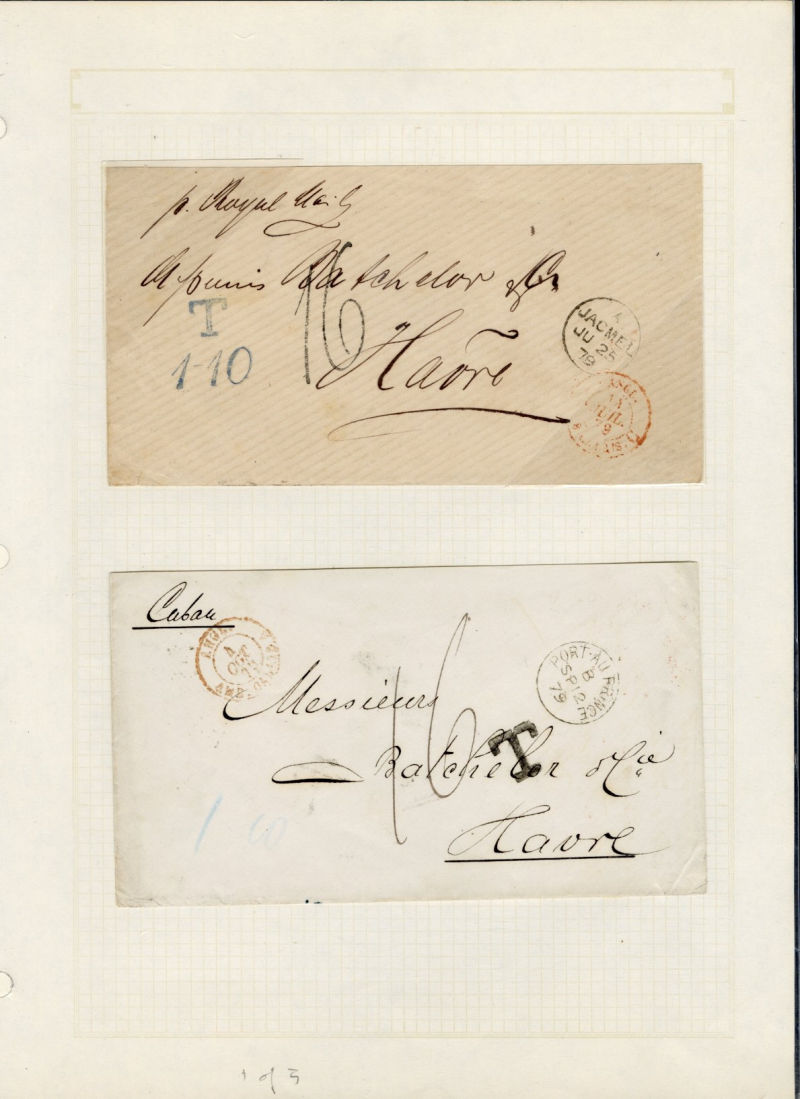 p. Royal Mail
Messieurs Batchelor & Co
16
T
1-10
Havre
A
JACMEL
JU 25
79
14
JUIL.
79
CALAIS
Cuban
ANGL.
A
OCT
79
PORT-AU PRINCE
B
SP 12
79
Messieurs
16
T
Batchelor & Cie
Havre
1 of 5